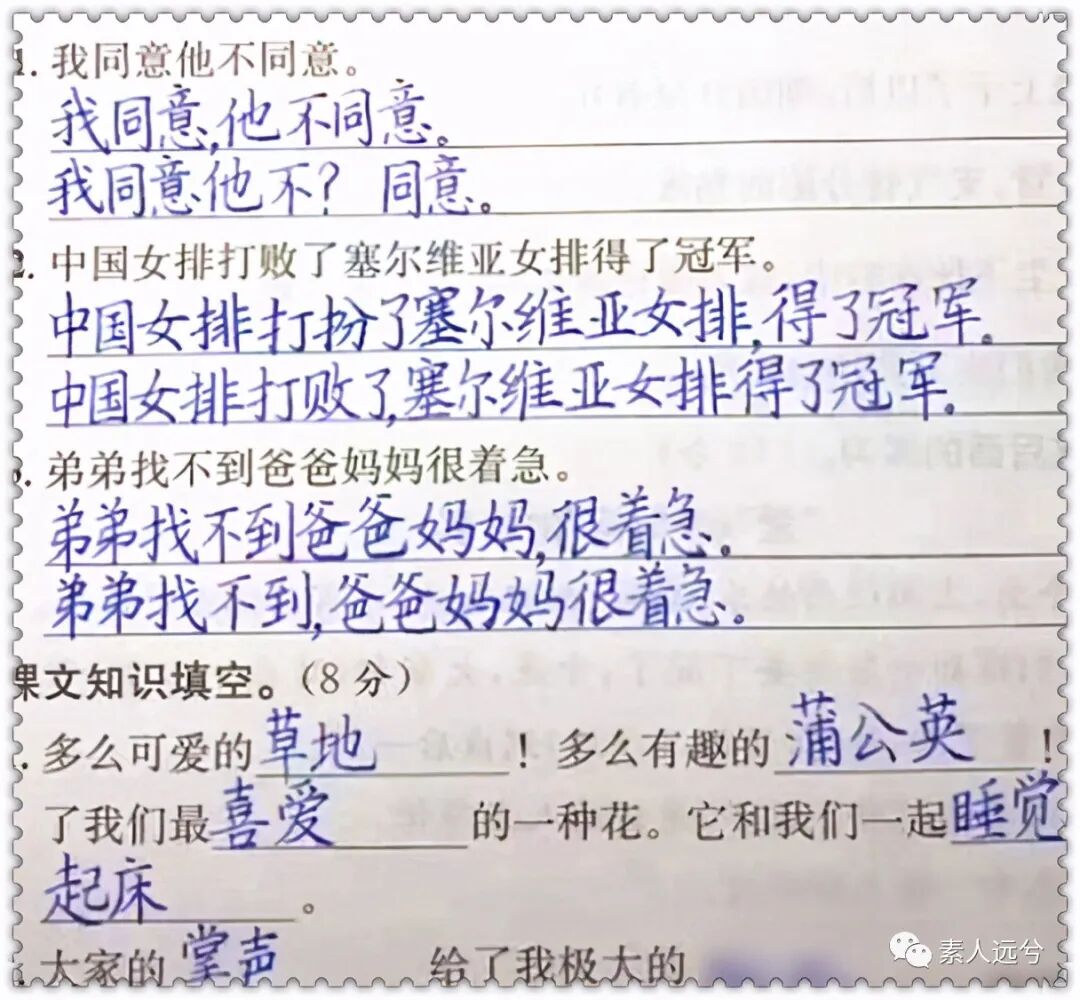 1. 我同意他不同意。
我同意,他不同意。
我同意他不? 同意。
2. 中国女排打败了塞尔维亚女排得了冠军。
中国女排打扮了塞尔维亚女排,得了冠军。
中国女排打败了,塞尔维亚女排得了冠军.
. 弟弟找不到爸爸妈妈很着急。
弟弟找不到爸爸妈妈,很着急。
弟弟找不到,爸爸妈妈很着急。
课文知识填空。(8分)
. 多么可爱的草地!多么有趣的蒲公英!
了我们最喜爱的一种花。它和我们一起睡觉
起床。
大家的掌声给了我极大的
素人远兮